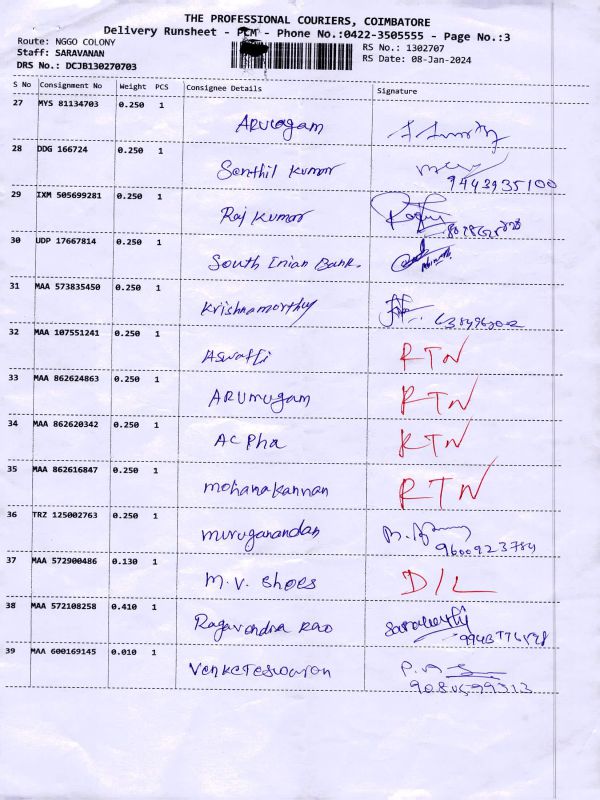 THE PROFESSIONAL COURIERS, COIMBATORE
Delivery Runsheet - PCM - Phone No.:0422-3505555 - Page No.:3
Route: NGGO COLONY
RS No.: 1302707
Staff: SARAVANAN
RS Date: 08-Jan-2024
DRS No.: DCJB130270703
S No Consignment No Weight PCS Consignee Details Signature
27 MYS 81134703 0.250 1 Arumugam
28 DDG 166724 0.250 1 Senthil Kumar
9443935100
29 IXM 505699281 0.250 1 Raj Kumar
30 UDP 17667814 0.250 1 South Inian Bank.
31 MAA 573835450 0.250 1 Krishnamorthy
32 MAA 107551241 0.250 1 RTN
33 MAA 862624863 0.250 1 ARumugam RTN
34 MAA 862620342 0.250 1 ACPha RTN
35 MAA 862616847 0.250 1 mohanakannan RTN
36 TRZ 125002763 0.250 1 muruganandan
9600923784
37 MAA 572900486 0.130 1 M.V. Shoes D/L
38 MAA 572108258 0.410 1 Ragavendra Rao
39 MAA 600169145 0.010 1 Venkateswaran